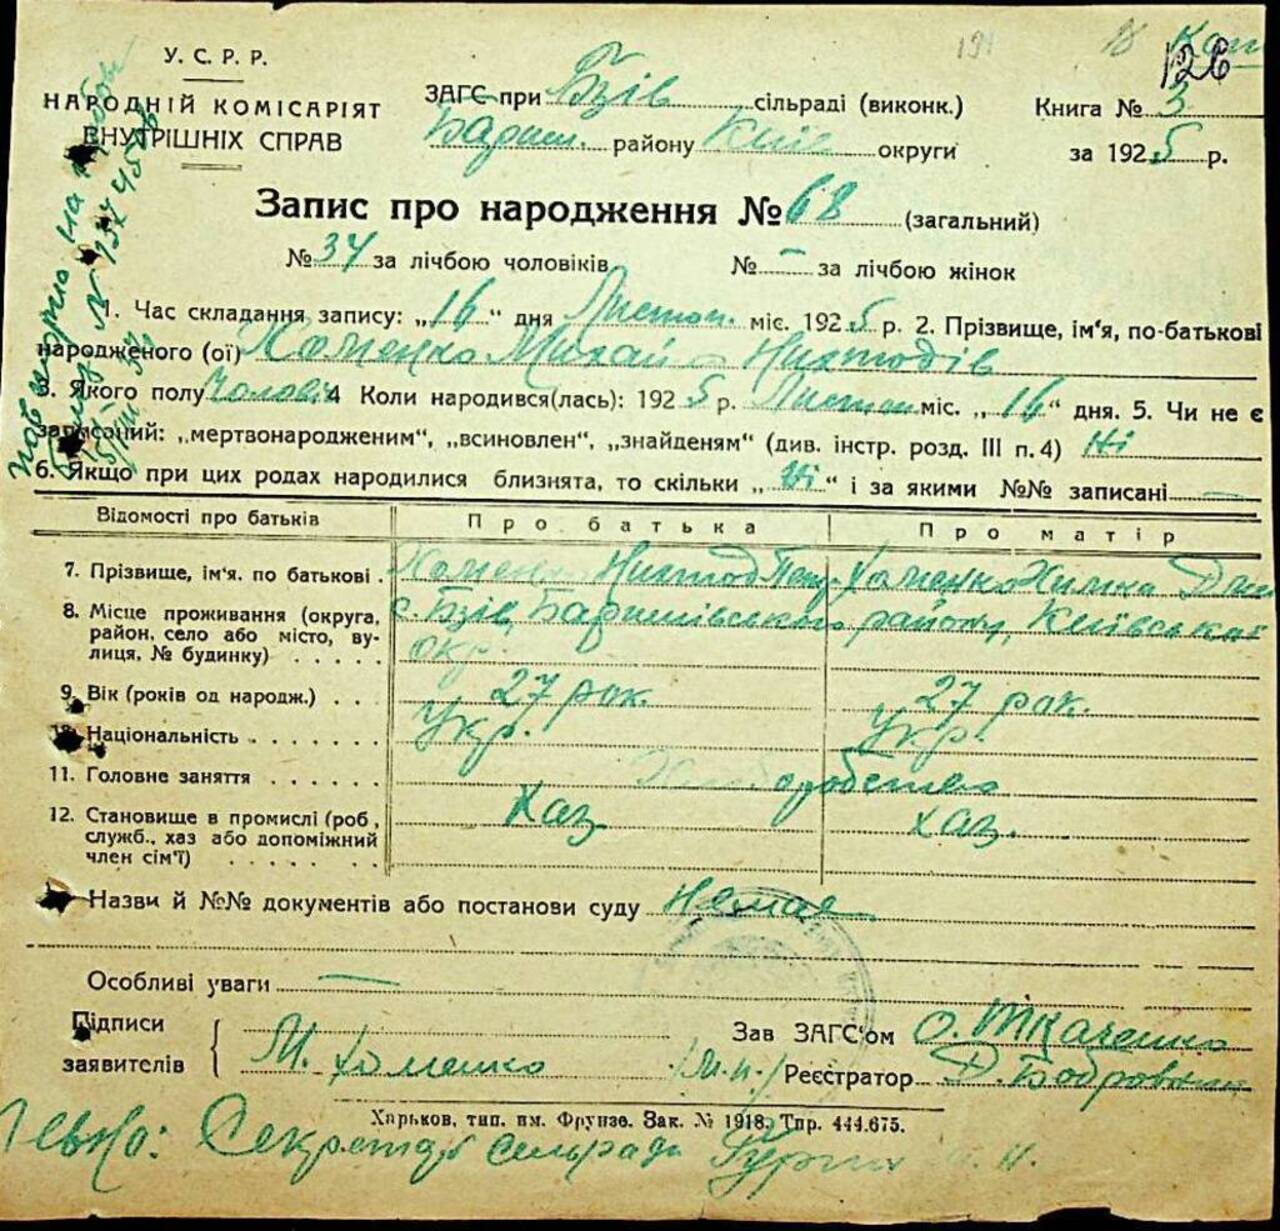 191 18
У. С. Р. Р. 126
НАРОДНІЙ КОМІСАРІЯТ
ВНУТРІШНІХ СПРАВ
ЗАГС при Бзів сільраді (виконк.) Книга № 3
Бариш. району Київ округи за 1925 р.
Запис про народження № 68 (загальний)
№ 34 за лічбою чоловіків № – за лічбою жінок
1. Час складання запису: „16“ дня Листоп. міс. 1925 р. 2. Прізвище, ім'я, по-батькові
народженого (ої) Хоменко Михайло
3. Якого полу Чоловіч 4 Коли народився(лась): 1925 р. Листоп міс. „16“ дня. 5. Чи не є
записоний: „мертвонародженим“, „всиновлен“, „знайденям“ (див. інстр. розд. III п. 4) Ні
6. Якщо при цих родах народилися близнята, то скільки „Ні“ і за якими №№ записані –
Відомості про батьків Про батька Про матір
7. Прізвище, ім'я. по батькові . Хоменко Хоменко Химка
8. Місце проживання (округа, с. Бзів, Баришівського району, Київської
район, село або місто, ву-
лиця, № будинку) . . . . . окр.
9. Вік (років од народж.) . . . 27 рок. 27 рок.
10. Національність . . . . . . . Укр. Укр.
11. Головне заняття . . . . . . Хлiборобство
12. Становище в промислі (роб, Хаз. Хаз.
служб., хаз або допоміжний
член сім'ї) . . . . . .
Назви й №№ документів або постанови суду Немає
Особливі уваги –
Підписи Зав ЗАГС'ом О. Ткаченко
заявителів М. Хоменко /М.п./ Реєстратор Д. Бобровський
Харьков, тип. им. Фрунзе. Зак. № 1918. Тпр. 444.675.
Секретар сельради